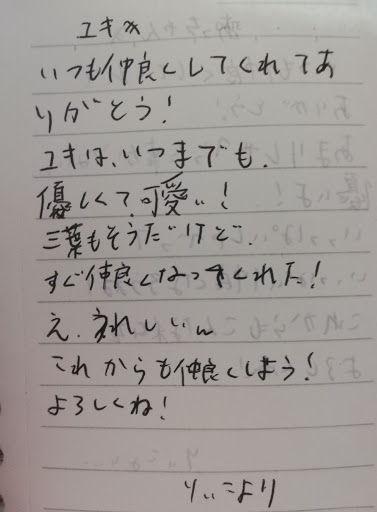 ユキへ
いつも仲良くしてくれてあ
りがとう!
ユキは、いつまでも、
優しくて可愛い!
三葉もそうだけど、
すぐ仲良くなってくれた!
え、うれしいw
これからも仲良くしよう!
よろしくね!
りいこより